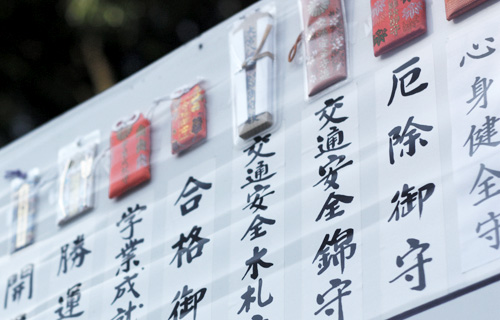 心身健全守
厄除御守
交通安全錦守
交通安全木札
合格御
学業成就
勝運
開